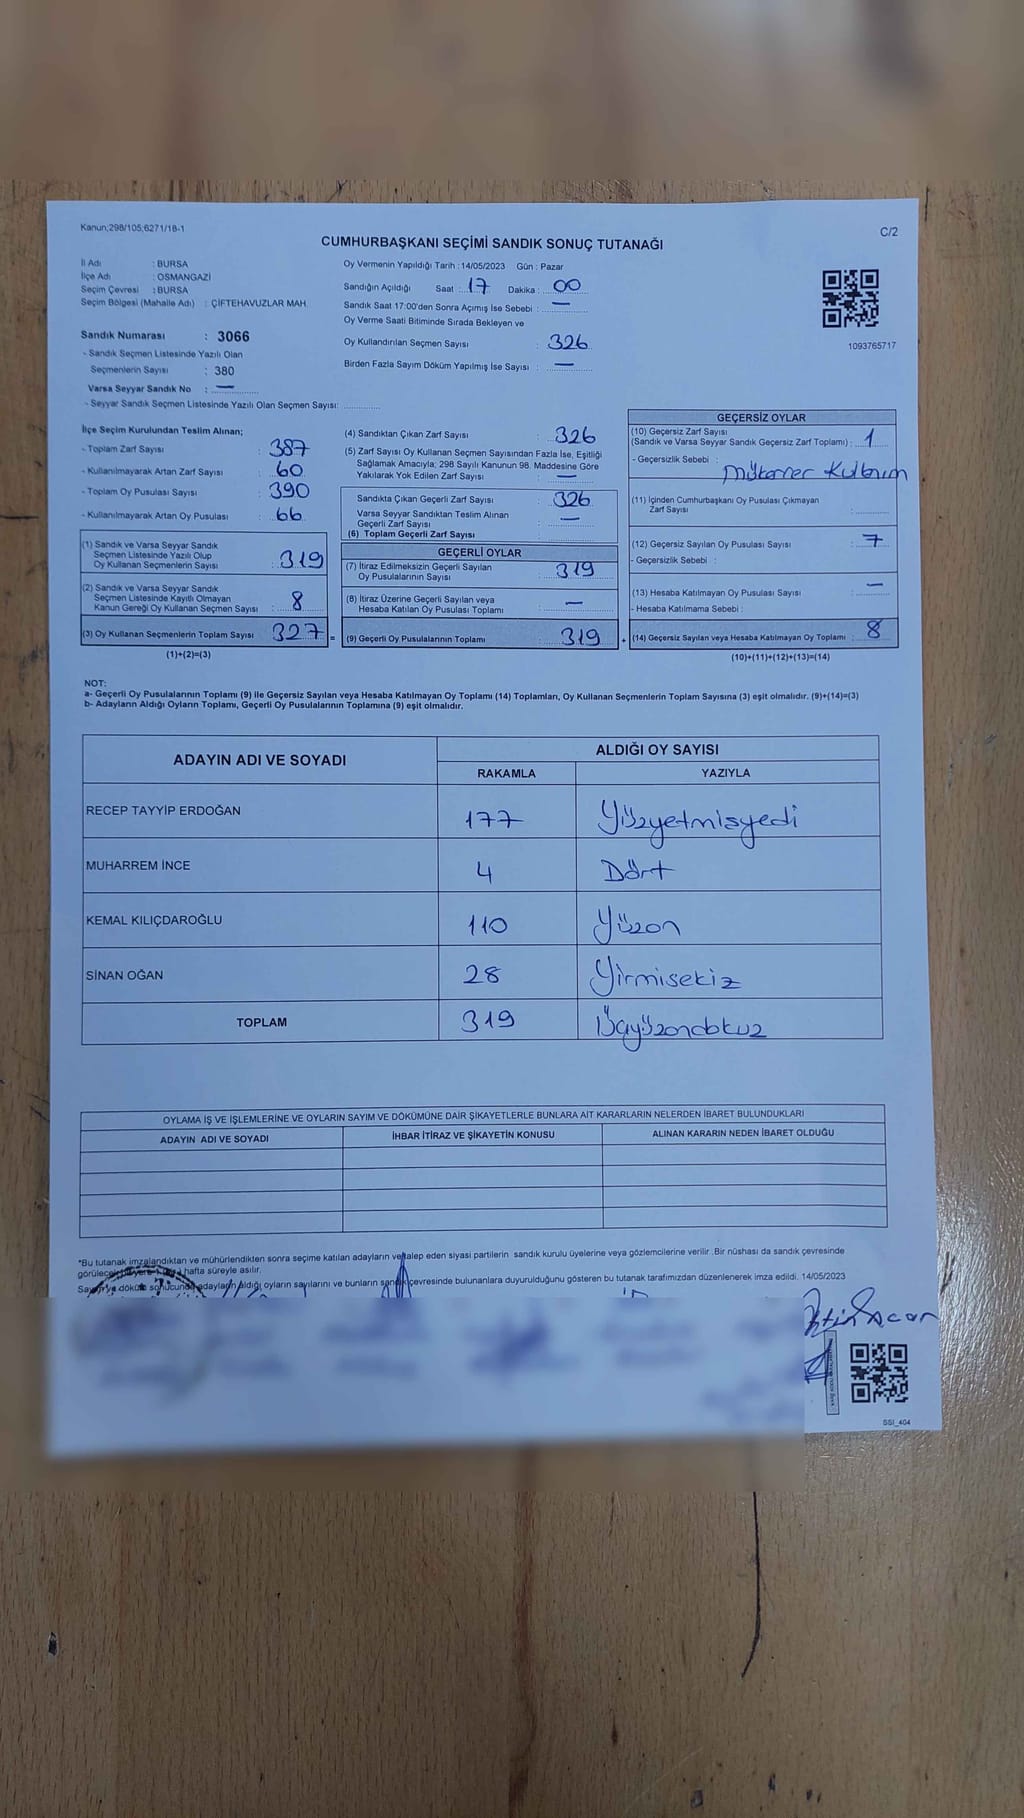 Kanun;298/105,6271/18-1
C/2
CUMHURBAŞKANI SEÇİMİ SANDIK SONUÇ TUTANAĞI
İl Adı : BURSA
İlçe Adı : OSMANGAZİ
Seçim Çevresi : BURSA
Seçim Bölgesi (Mahalle Adı) : ÇİFTEHAVUZLAR MAH.
Sandık Numarası : 3066
- Sandık Seçmen Listesinde Yazılı Olan
Seçmenlerin Sayısı : 380
Varsa Seyyar Sandık No : —
- Seyyar Sandık Seçmen Listesinde Yazılı Olan Seçmen Sayısı:
Oy Vermenin Yapıldığı Tarih : 14/05/2023 Gün : Pazar
Sandığın Açıldığı Saat : 17 Dakika : 00
Sandık Saat 17:00'den Sonra Açımış İse Sebebi : —
Oy Verme Saati Bitiminde Sırada Bekleyen ve
Oy Kullandırılan Seçmen Sayısı : 326
Birden Fazla Sayım Döküm Yapılmış İse Sayısı : —
1093765717
İlçe Seçim Kurulundan Teslim Alınan;
- Toplam Zarf Sayısı : 387
- Kullanılmayarak Artan Zarf Sayısı : 60
- Toplam Oy Pusulası Sayısı : 390
- Kullanılmayarak Artan Oy Pusulası : 66
(1) Sandık ve Varsa Seyyar Sandık
Seçmen Listesinde Yazılı Olup
Oy Kullanan Seçmenlerin Sayısı : 319
(2) Sandık ve Varsa Seyyar Sandık
Seçmen Listesinde Kayıtlı Olmayan
Kanun Gereği Oy Kullanan Seçmen Sayısı : 8
(3) Oy Kullanan Seçmenlerin Toplam Sayısı : 327 =
(1)+(2)=(3)
(4) Sandıktan Çıkan Zarf Sayısı : 326
(5) Zarf Sayısı Oy Kullanan Seçmen Sayısından Fazla İse, Eşitliği
Sağlamak Amacıyla; 298 Sayılı Kanunun 98. Maddesine Göre
Yakılarak Yok Edilen Zarf Sayısı : —
Sandıkta Çıkan Geçerli Zarf Sayısı : 326
Varsa Seyyar Sandıktan Teslim Alınan
Geçerli Zarf Sayısı : —
(6) Toplam Geçerli Zarf Sayısı :
GEÇERLİ OYLAR
(7) İtiraz Edilmeksizin Geçerli Sayılan
Oy Pusulalarının Sayısı : 319
(8) İtiraz Üzerine Geçerli Sayılan veya
Hesaba Katılan Oy Pusulası Toplamı : —
(9) Geçerli Oy Pusulalarının Toplamı : 319 +
GEÇERSİZ OYLAR
(10) Geçersiz Zarf Sayısı
(Sandık ve Varsa Seyyar Sandık Geçersiz Zarf Toplamı) : 1
- Geçersizlik Sebebi :
(11) İçinden Cumhurbaşkanı Oy Pusulası Çıkmayan
Zarf Sayısı :
(12) Geçersiz Sayılan Oy Pusulası Sayısı : 7
- Geçersizlik Sebebi :
(13) Hesaba Katılmayan Oy Pusulası Sayısı : —
- Hesaba Katılmama Sebebi :
(14) Geçersiz Sayılan veya Hesaba Katılmayan Oy Toplamı : 8
(10)+(11)+(12)+(13)=(14)
NOT:
a- Geçerli Oy Pusulalarının Toplamı (9) ile Geçersiz Sayılan veya Hesaba Katılmayan Oy Toplamı (14) Toplamları, Oy Kullanan Seçmenlerin Toplam Sayısına (3) eşit olmalıdır. (9)+(14)=(3)
b- Adayların Aldığı Oyların Toplamı, Geçerli Oy Pusulalarının Toplamına (9) eşit olmalıdır.
ADAYIN ADI VE SOYADI
ALDIĞI OY SAYISI
RAKAMLA YAZIYLA
RECEP TAYYİP ERDOĞAN 177 Yüzyetmişyedi
MUHARREM İNCE 4 Dört
KEMAL KILIÇDAROĞLU 110 Yüzon
SİNAN OĞAN 28 Yirmisekiz
TOPLAM 319 Üçyüzondokuz
OYLAMA İŞ VE İŞLEMLERİNE VE OYLARIN SAYIM VE DÖKÜMÜNE DAİR ŞİKAYETLERLE BUNLARA AİT KARARLARIN NELERDEN İBARET BULUNDUKLARI
ADAYIN ADI VE SOYADI İHBAR İTİRAZ VE ŞİKAYETİN KONUSU ALINAN KARARIN NEDEN İBARET OLDUĞU
*Bu tutanak imzalandıktan ve mühürlendikten sonra seçime katılan adayların ve talep eden siyasi partilerin sandık kurulu üyelerine veya gözlemcilerine verilir. Bir nüshası da sandık çevresinde
hafta süreyle asılır.
adayların aldığı oyların sayılarını ve bunların sandık çevresinde bulunanlara duyurulduğunu gösteren bu tutanak tarafımızdan düzenlenerek imza edildi. 14/05/2023
SSI_404